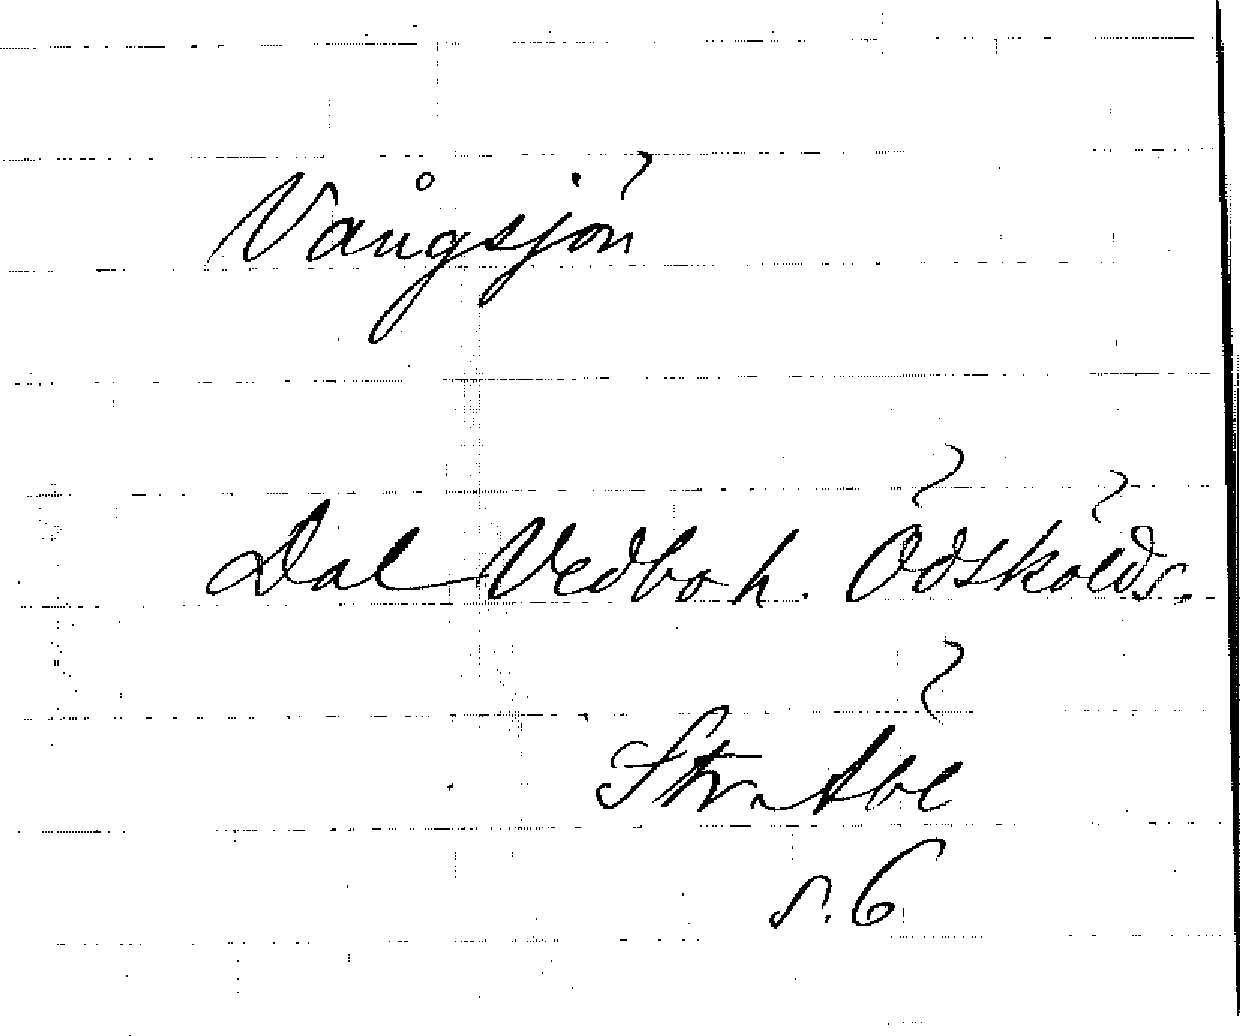 Vångsjön
Dal Vedbo h. Ödskölds.
s. 6